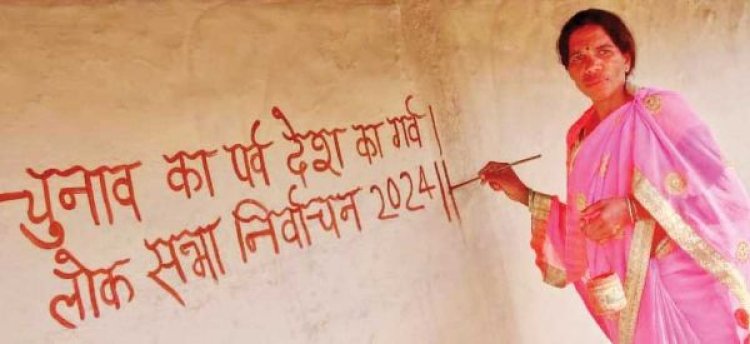 चुनाव का पर्व देश का गर्व।
लोक सभा निर्वाचन 2024॥